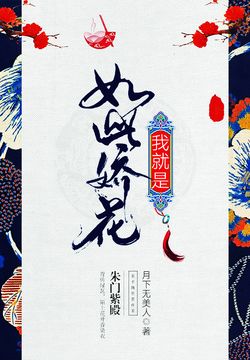 我就是
如此娇花
朱门紫殿
月下无美人◎著